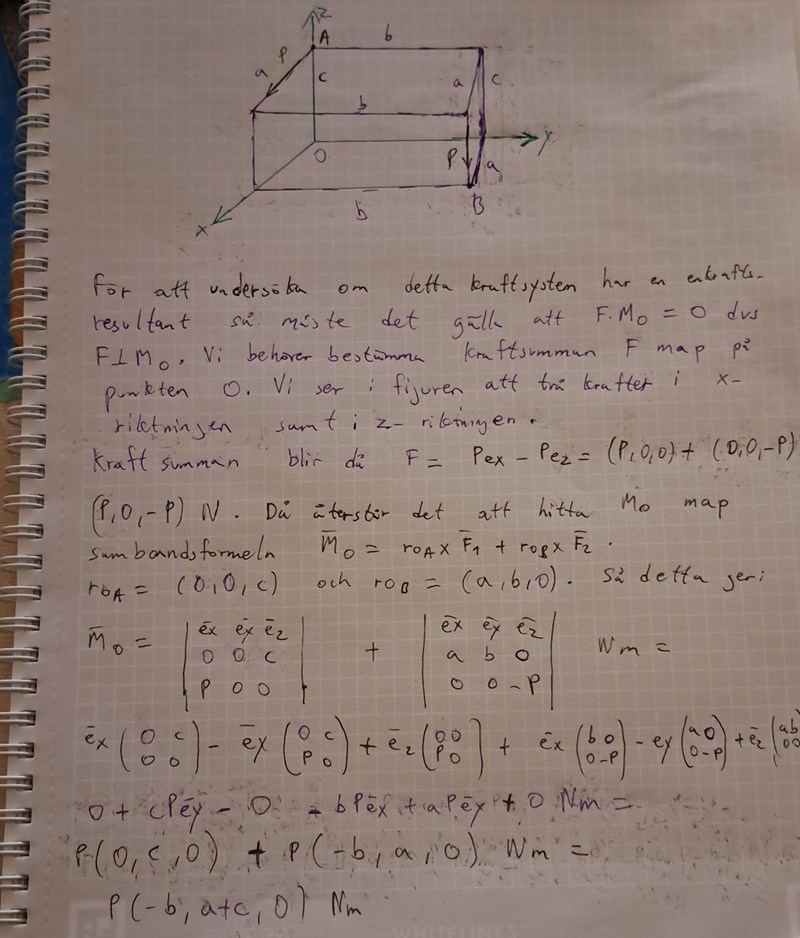 z
A
b
P
a
c
a
c
b
O
y
P
a
x
b
B
För att undersöka om detta kraftsystem har en enkrafts-
resultant så måste det gälla att F·M₀ = 0 dvs
F⊥M₀. Vi behöver bestämma kraftsumman F map på
punkten O. Vi ser i figuren att två krafter i x-
riktningen samt i z-riktningen.
Kraftsumman blir då F = Pex - Pez = (P,0,0) + (0,0,-P)
(P,0,-P) N. Då återstår det att hitta M₀ map
sambandsformeln M̄₀ = r₀A x F̄₁ + r₀B x F̄₂.
r₀A = (0,0,c) och r₀B = (a,b,0). Så detta ger:
M̄₀ = | ēx ēy ēz | + | ēx ēy ēz | Nm =
0 0 c a b 0
P 0 0 0 0 -P
ēx (0 c) - ēy (0 c) + ēz (0 0) + ēx (b 0) - ey (a 0) + ēz (a b)
0 0 P 0 P 0 0 -P 0 -P 0 0
0 + cPēy - 0 - bPēx + aPēy + 0 Nm =
P(0,c,0) + P(-b,a,0) Nm =
P(-b, a+c, 0) Nm
WHITELINES